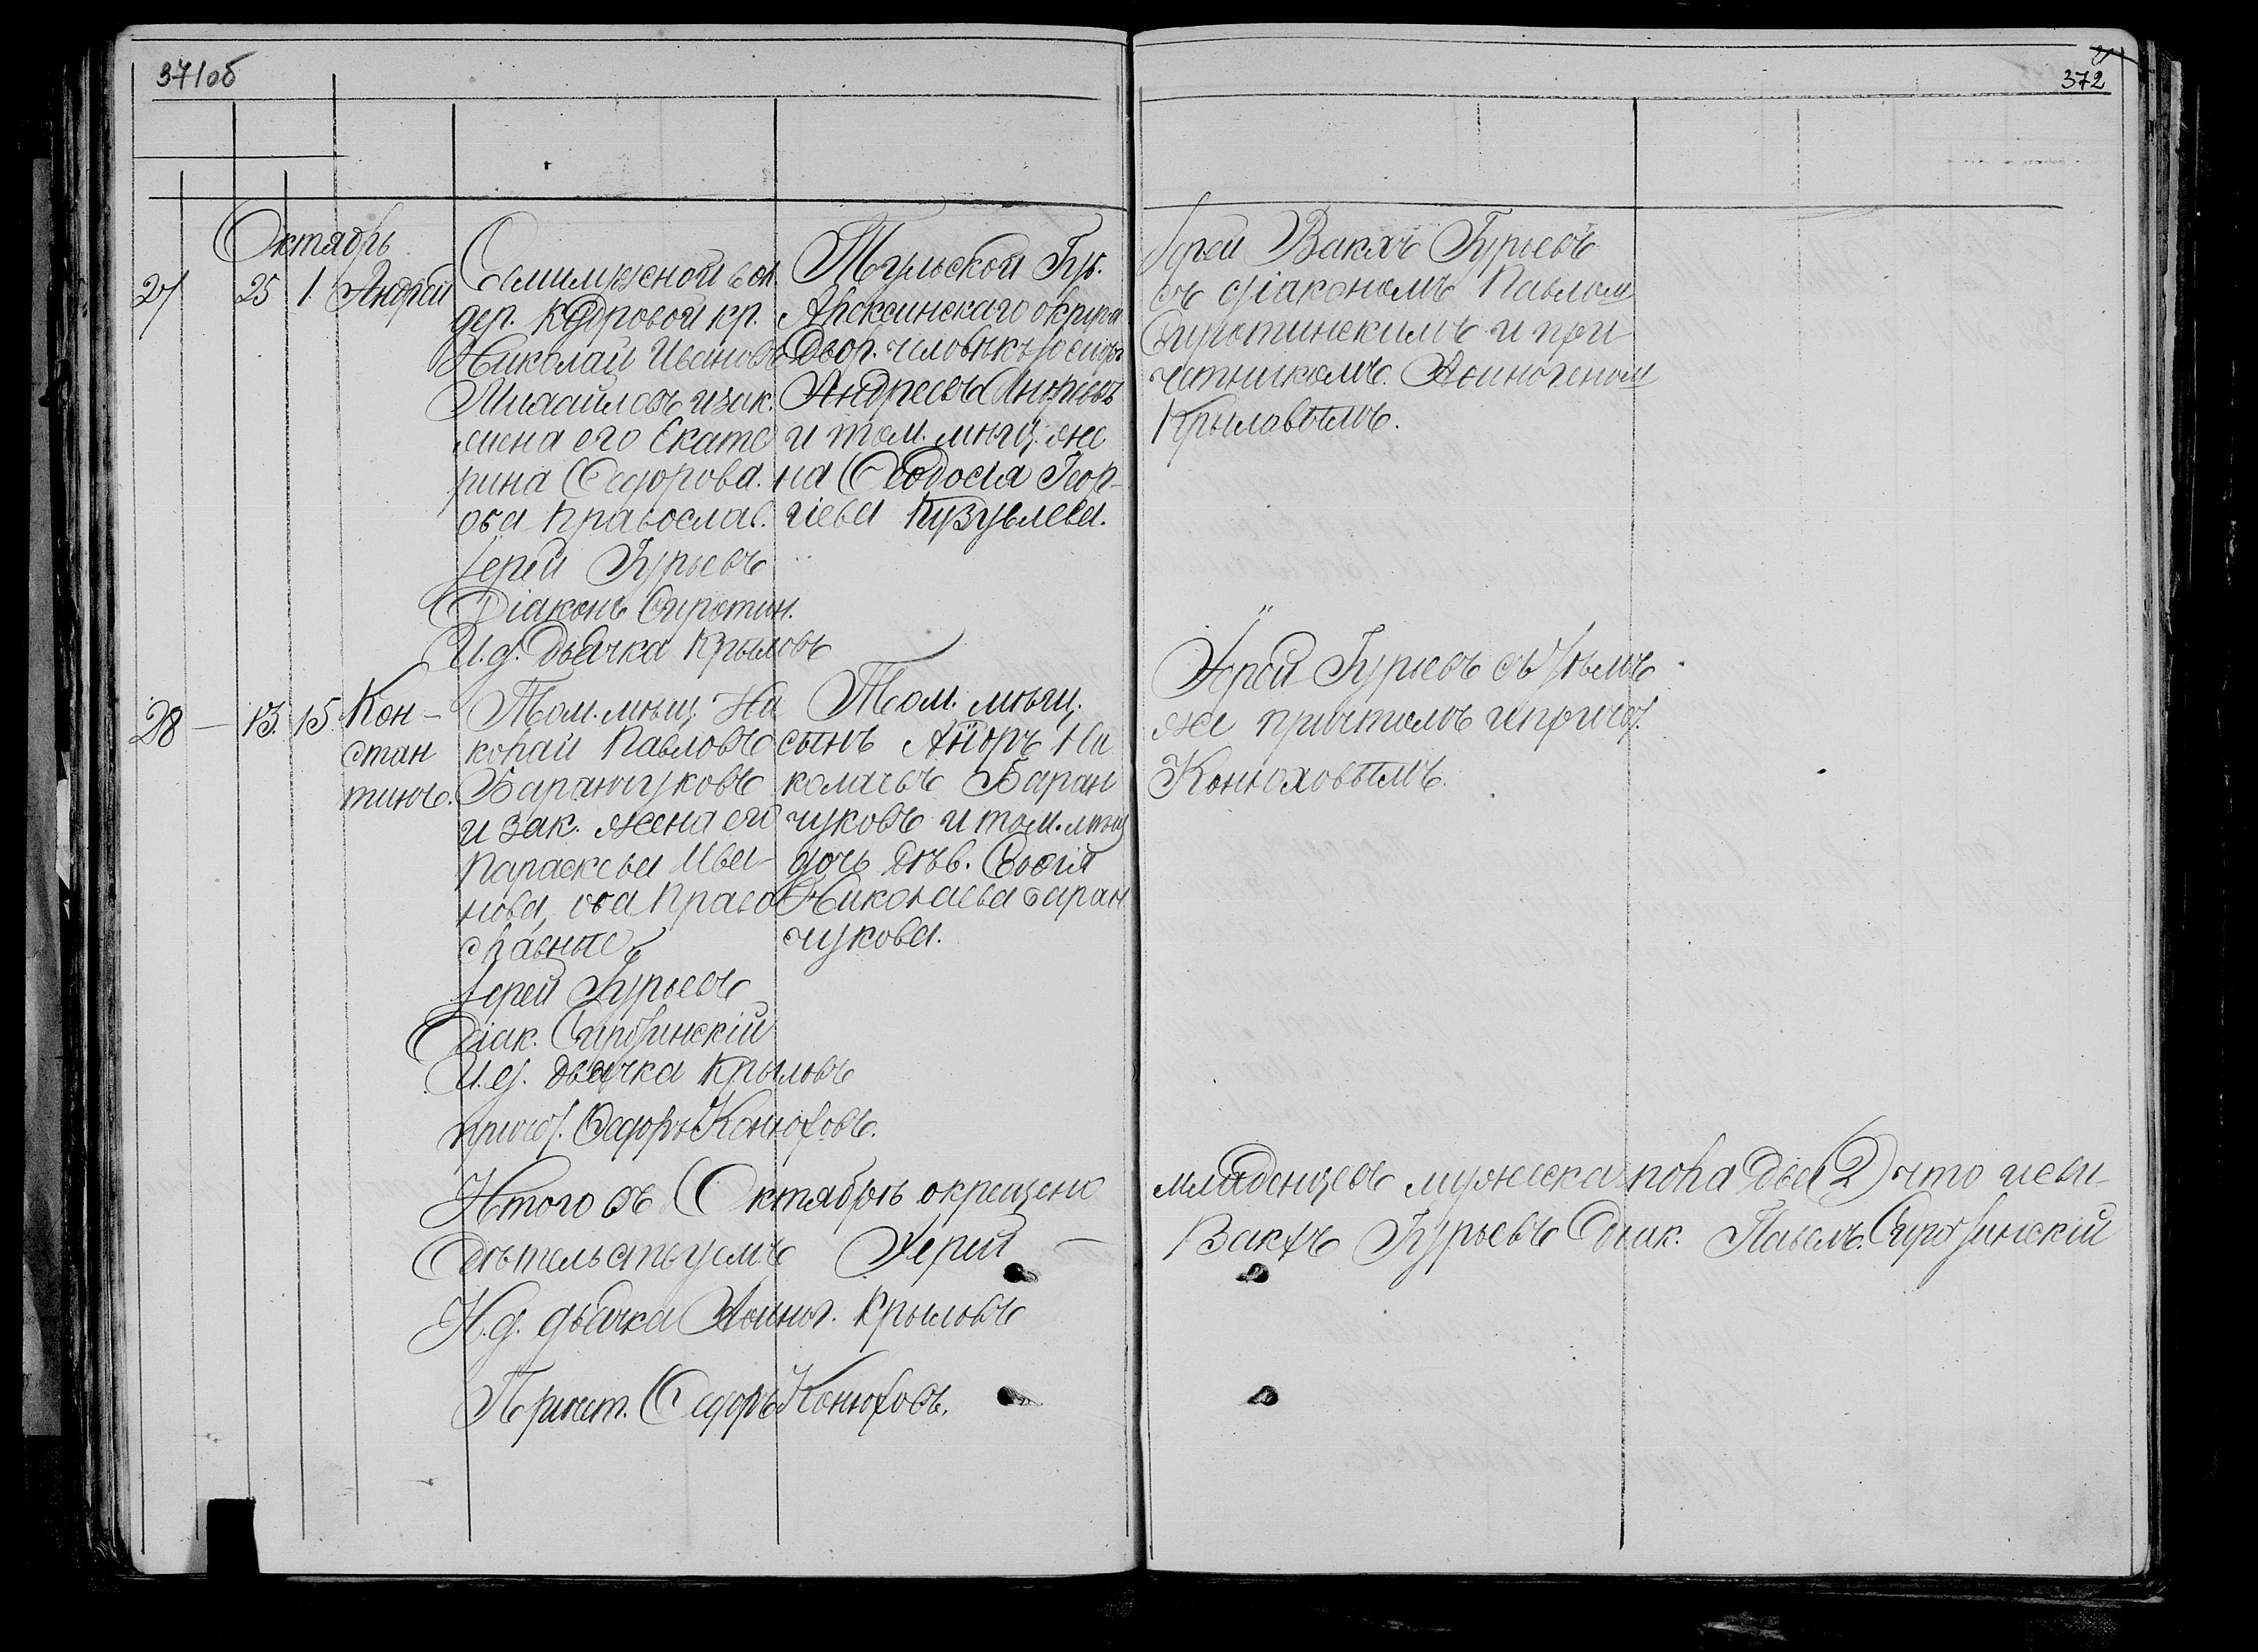 371об
372
Октябрь
27 25 1. Андрей
Семилужной вол.
дер. Кедровой кр.
Николай Ивановъ
Михайловъ и зак.
жена его Екате
рина Ѳедорова.
оба православ.
Іерей Гурьевъ
Діаконъ Сиротин.
И.д. дьячка Крыловъ
Тульской Губ.
Алексинскаго округа
Двор. человѣкъ
Андреевъ
и том. мѣщ. же
на Ѳеодосія Геор-
гіева
Іерей Вакхъ Гурьевъ
съ діакономъ Павломъ
Сиротинскимъ и при
четникомъ. Аѳиногеномъ
Крыловымъ.
28 – 13. 15. Кон-
стан
тинъ.
Том. мѣщ. Ни
колай Павловъ
Баранчуковъ
и зак. жена его
Параскева Ива-
нова, оба Право
славные
Іерей Гурьевъ
Діак. Сиротинскій
И.д. дьячка Крыловъ
Причет. Ѳедоръ Конюховъ.
Том. мѣщ.
сынъ Ни
колаевъ Баран
чуковъ и том. мѣщ
дочь дѣв. Софія
Николаева Баран
чукова.
Іерей Гурьевъ съ тѣмъ
же причтомъ и причет.
Конюховымъ.
Итого въ Октябрѣ окрещено
младенцевъ мужеска пола два (2) что и сви-
дѣтельствуемъ Іерей –
Вакхъ Гурьевъ Діак. Павелъ Сиротинскій
И.д. дьячка Аѳиног. Крыловъ
Причет. Ѳедоръ Конюховъ.